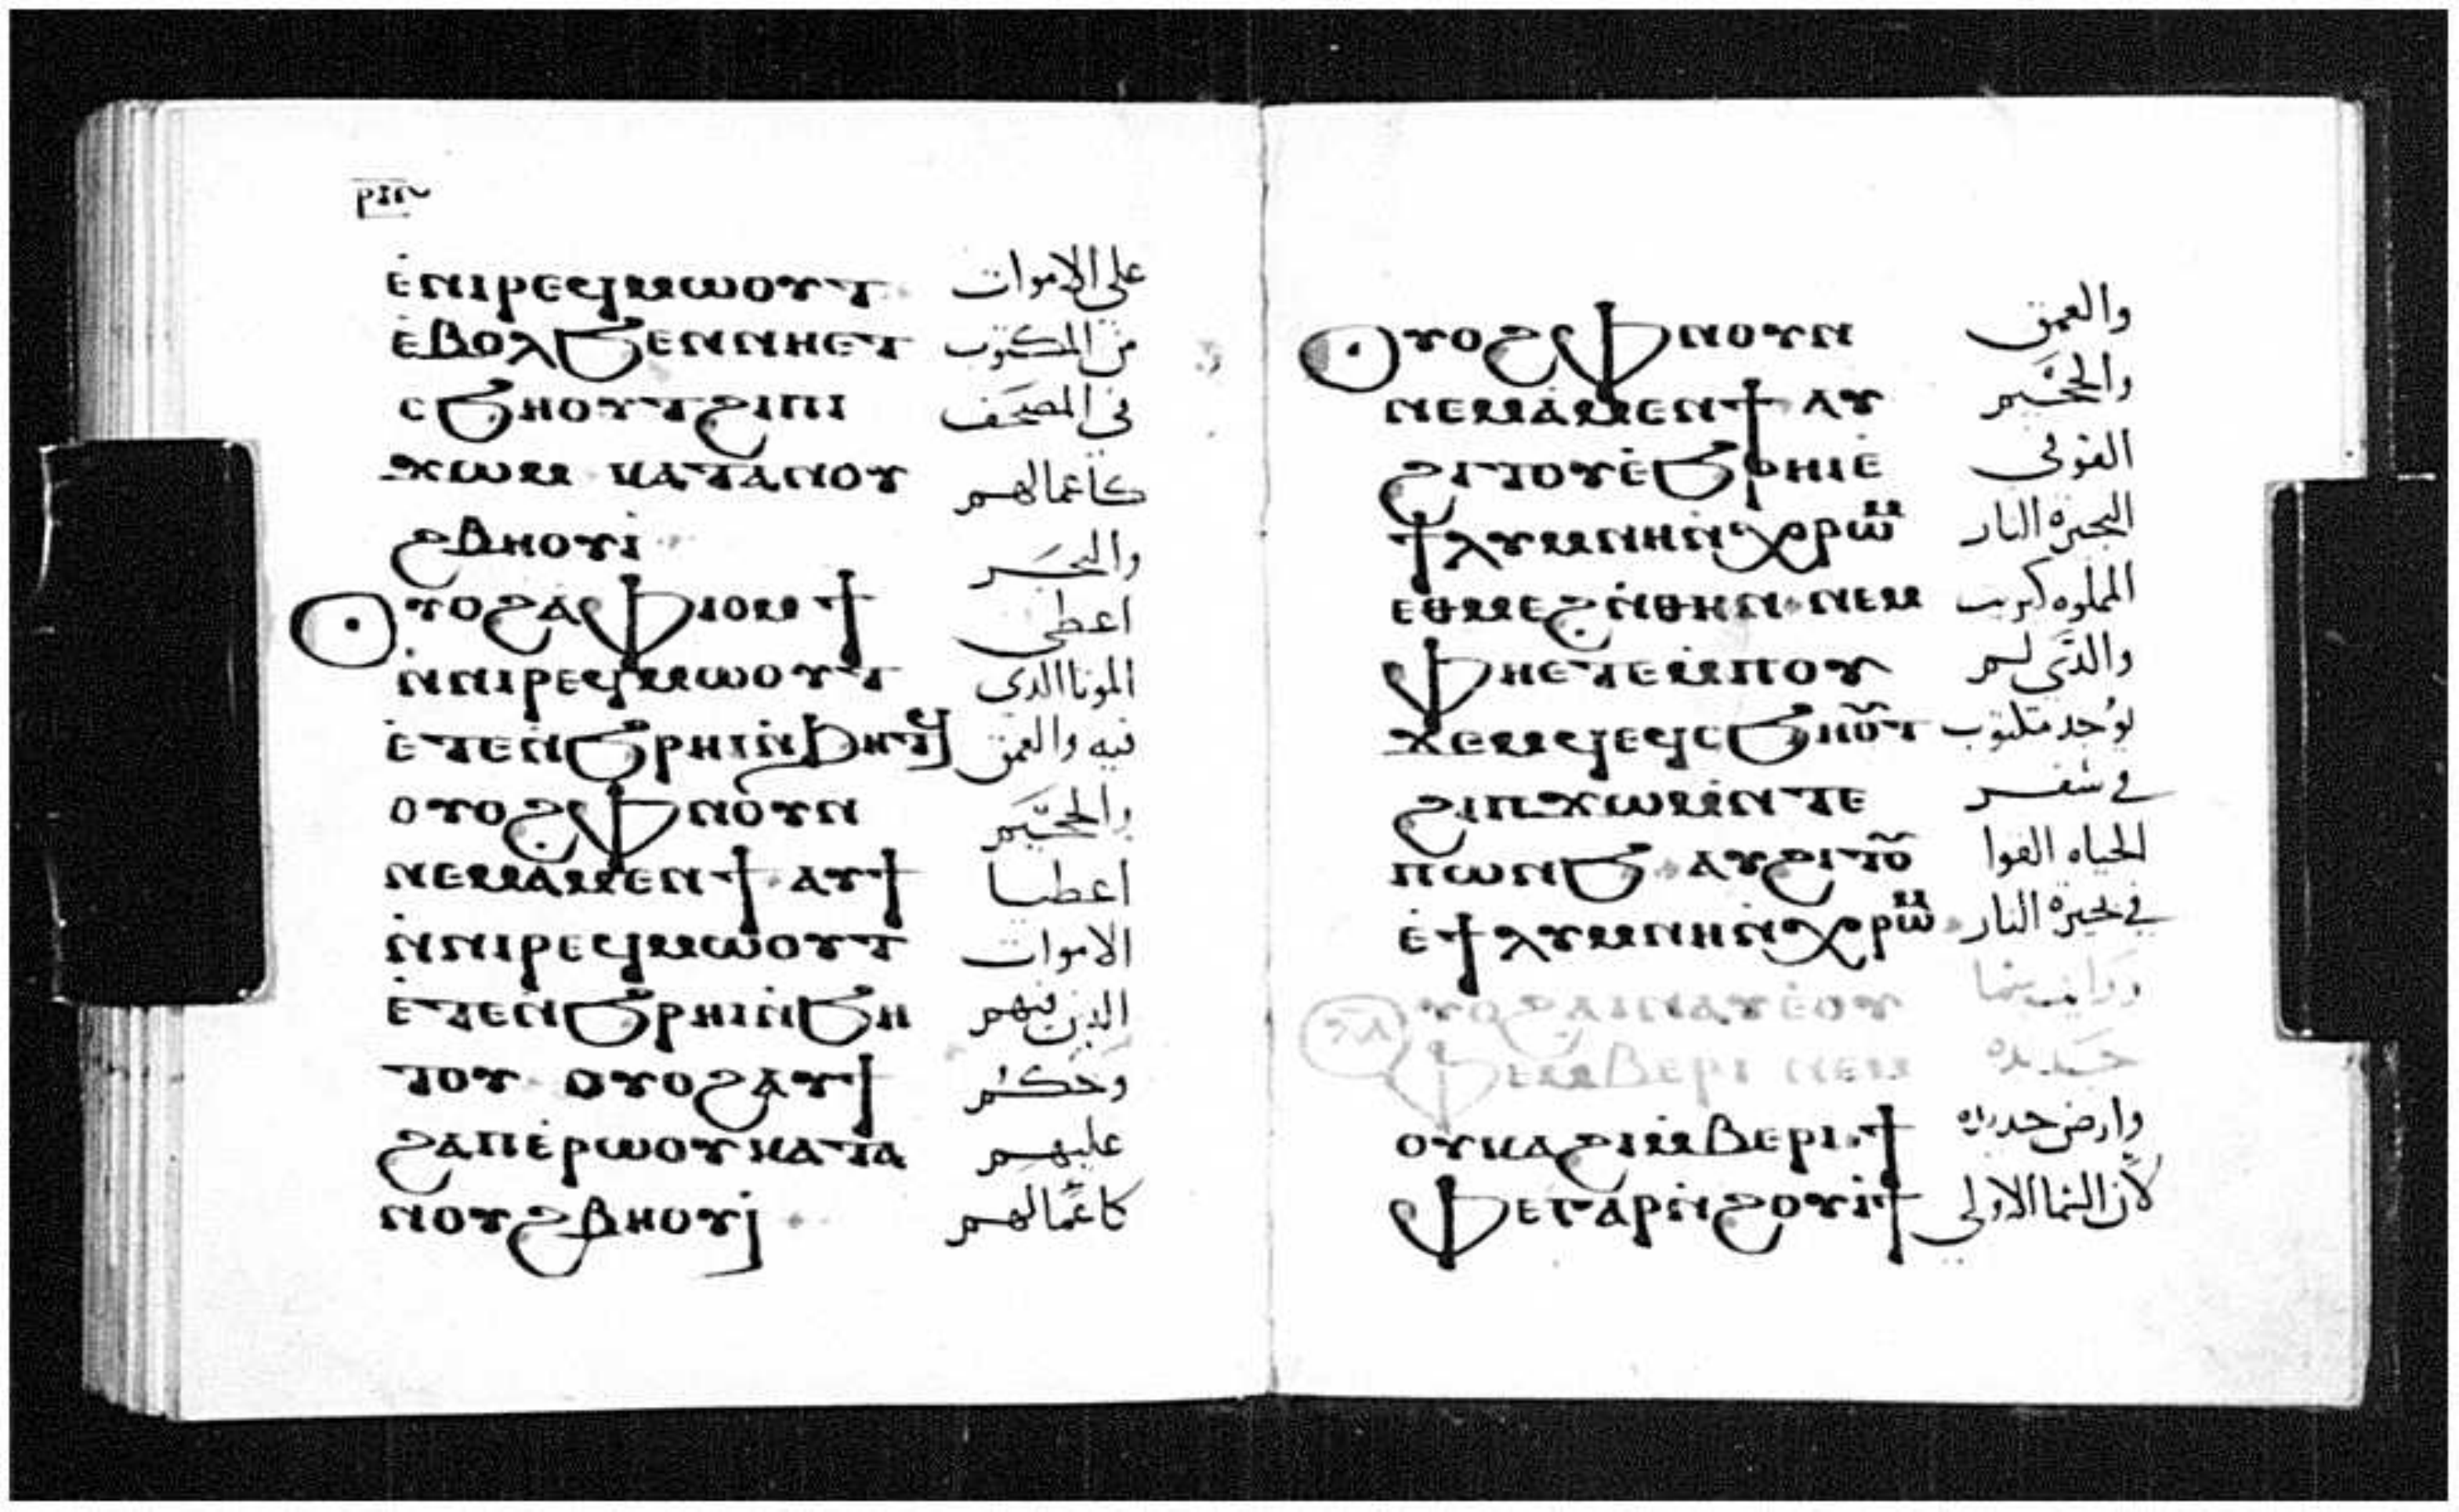 ⲣⲡⲏ
ⲉ̇ⲛⲓⲣⲉϥⲙⲱⲟⲩⲧ على الاموات
ⲉ̇ⲃⲟⲗϧⲉⲛⲛⲏⲉⲧ من المكتوب
ⲥϧⲏⲟⲩⲧϩⲓⲡⲓ في المصحف
ϫⲱⲙ ⲕⲁⲧⲁⲛⲟⲩ كاعمالهم
ϩⲃⲏⲟⲩⲓ̇ والبحر
ⲟⲩⲟϩⲁ̇ⲫⲓⲟⲙϯ اعطى
ⲛ̇ⲛⲓⲣⲉϥⲙⲱⲟⲩⲧ الموتا الدى
ⲉ̇ⲧⲉⲛ̇ϧⲣⲏⲓⲛ̇ϧⲏⲧϥ فيه والعمق
ⲟⲩⲟϩⲫⲛⲟⲩⲛ والجحيم
ⲛⲉⲙⲁ̇ⲙⲉⲛϯ ⲁⲩϯ اعطيا
ⲛ̇ⲛⲓⲣⲉϥⲙⲱⲟⲩⲧ الاموات
ⲉ̇ⲧⲉⲛ̇ϧⲣⲏⲓⲛ̇ϧⲏ الدين فيهم
ⲧⲟⲩ ⲟⲩⲟϩⲁⲩϯ وحكم
ϩⲁⲡⲉ̇ⲣⲱⲟⲩⲕⲁⲧⲁ عليهم
ⲛⲟⲩϩⲃⲏⲟⲩⲓ كاعمالهم
ⲟⲩⲟϩⲫⲛⲟⲩⲛ والعمق
ⲛⲉⲙⲁ̇ⲙⲉⲛϯ ⲁⲩ والجحيم
ϩⲓⲧⲟⲩⲉ̇ϧⲣⲏⲓⲉ̇ القوفي
ϯⲗⲩⲙⲛⲏⲛ̇ⲭⲣⲱⲙ البحيره النار
ⲉⲑⲙⲉϩⲛ̇ⲑⲏⲛ ⲛⲉⲙ المملوه كبريت
ⲫⲏⲉⲧⲉⲙ̇ⲡⲟⲩ والدى لم
ϫⲉⲙϥⲉϥⲥϧⲏⲟⲩⲧ يوجد مكتوب
ϩⲓⲡϫⲱⲙⲛ̇ⲧⲉ في سفر
ⲡⲱⲛϧ ⲁⲩϩⲓⲧⲟⲩ الحياه القوا
ⲉ̇ϯⲗⲩⲙⲛⲏⲛ̇ⲭⲣⲱⲙ في بحيرة النار
ⲟⲩⲟϩⲁⲓⲛⲁⲩⲉ̇ⲟⲩ ورايت سما
ⲫⲉⲙ̇ⲃⲉⲣⲓ ⲛⲉⲙ جديده
ⲟⲩⲕⲁϩⲓⲙ̇ⲃⲉⲣⲓ ϯ وارض جديده
ⲫⲉⲅⲁⲣⲛ̇ϩⲟⲩⲓϯ لان السما الاولى